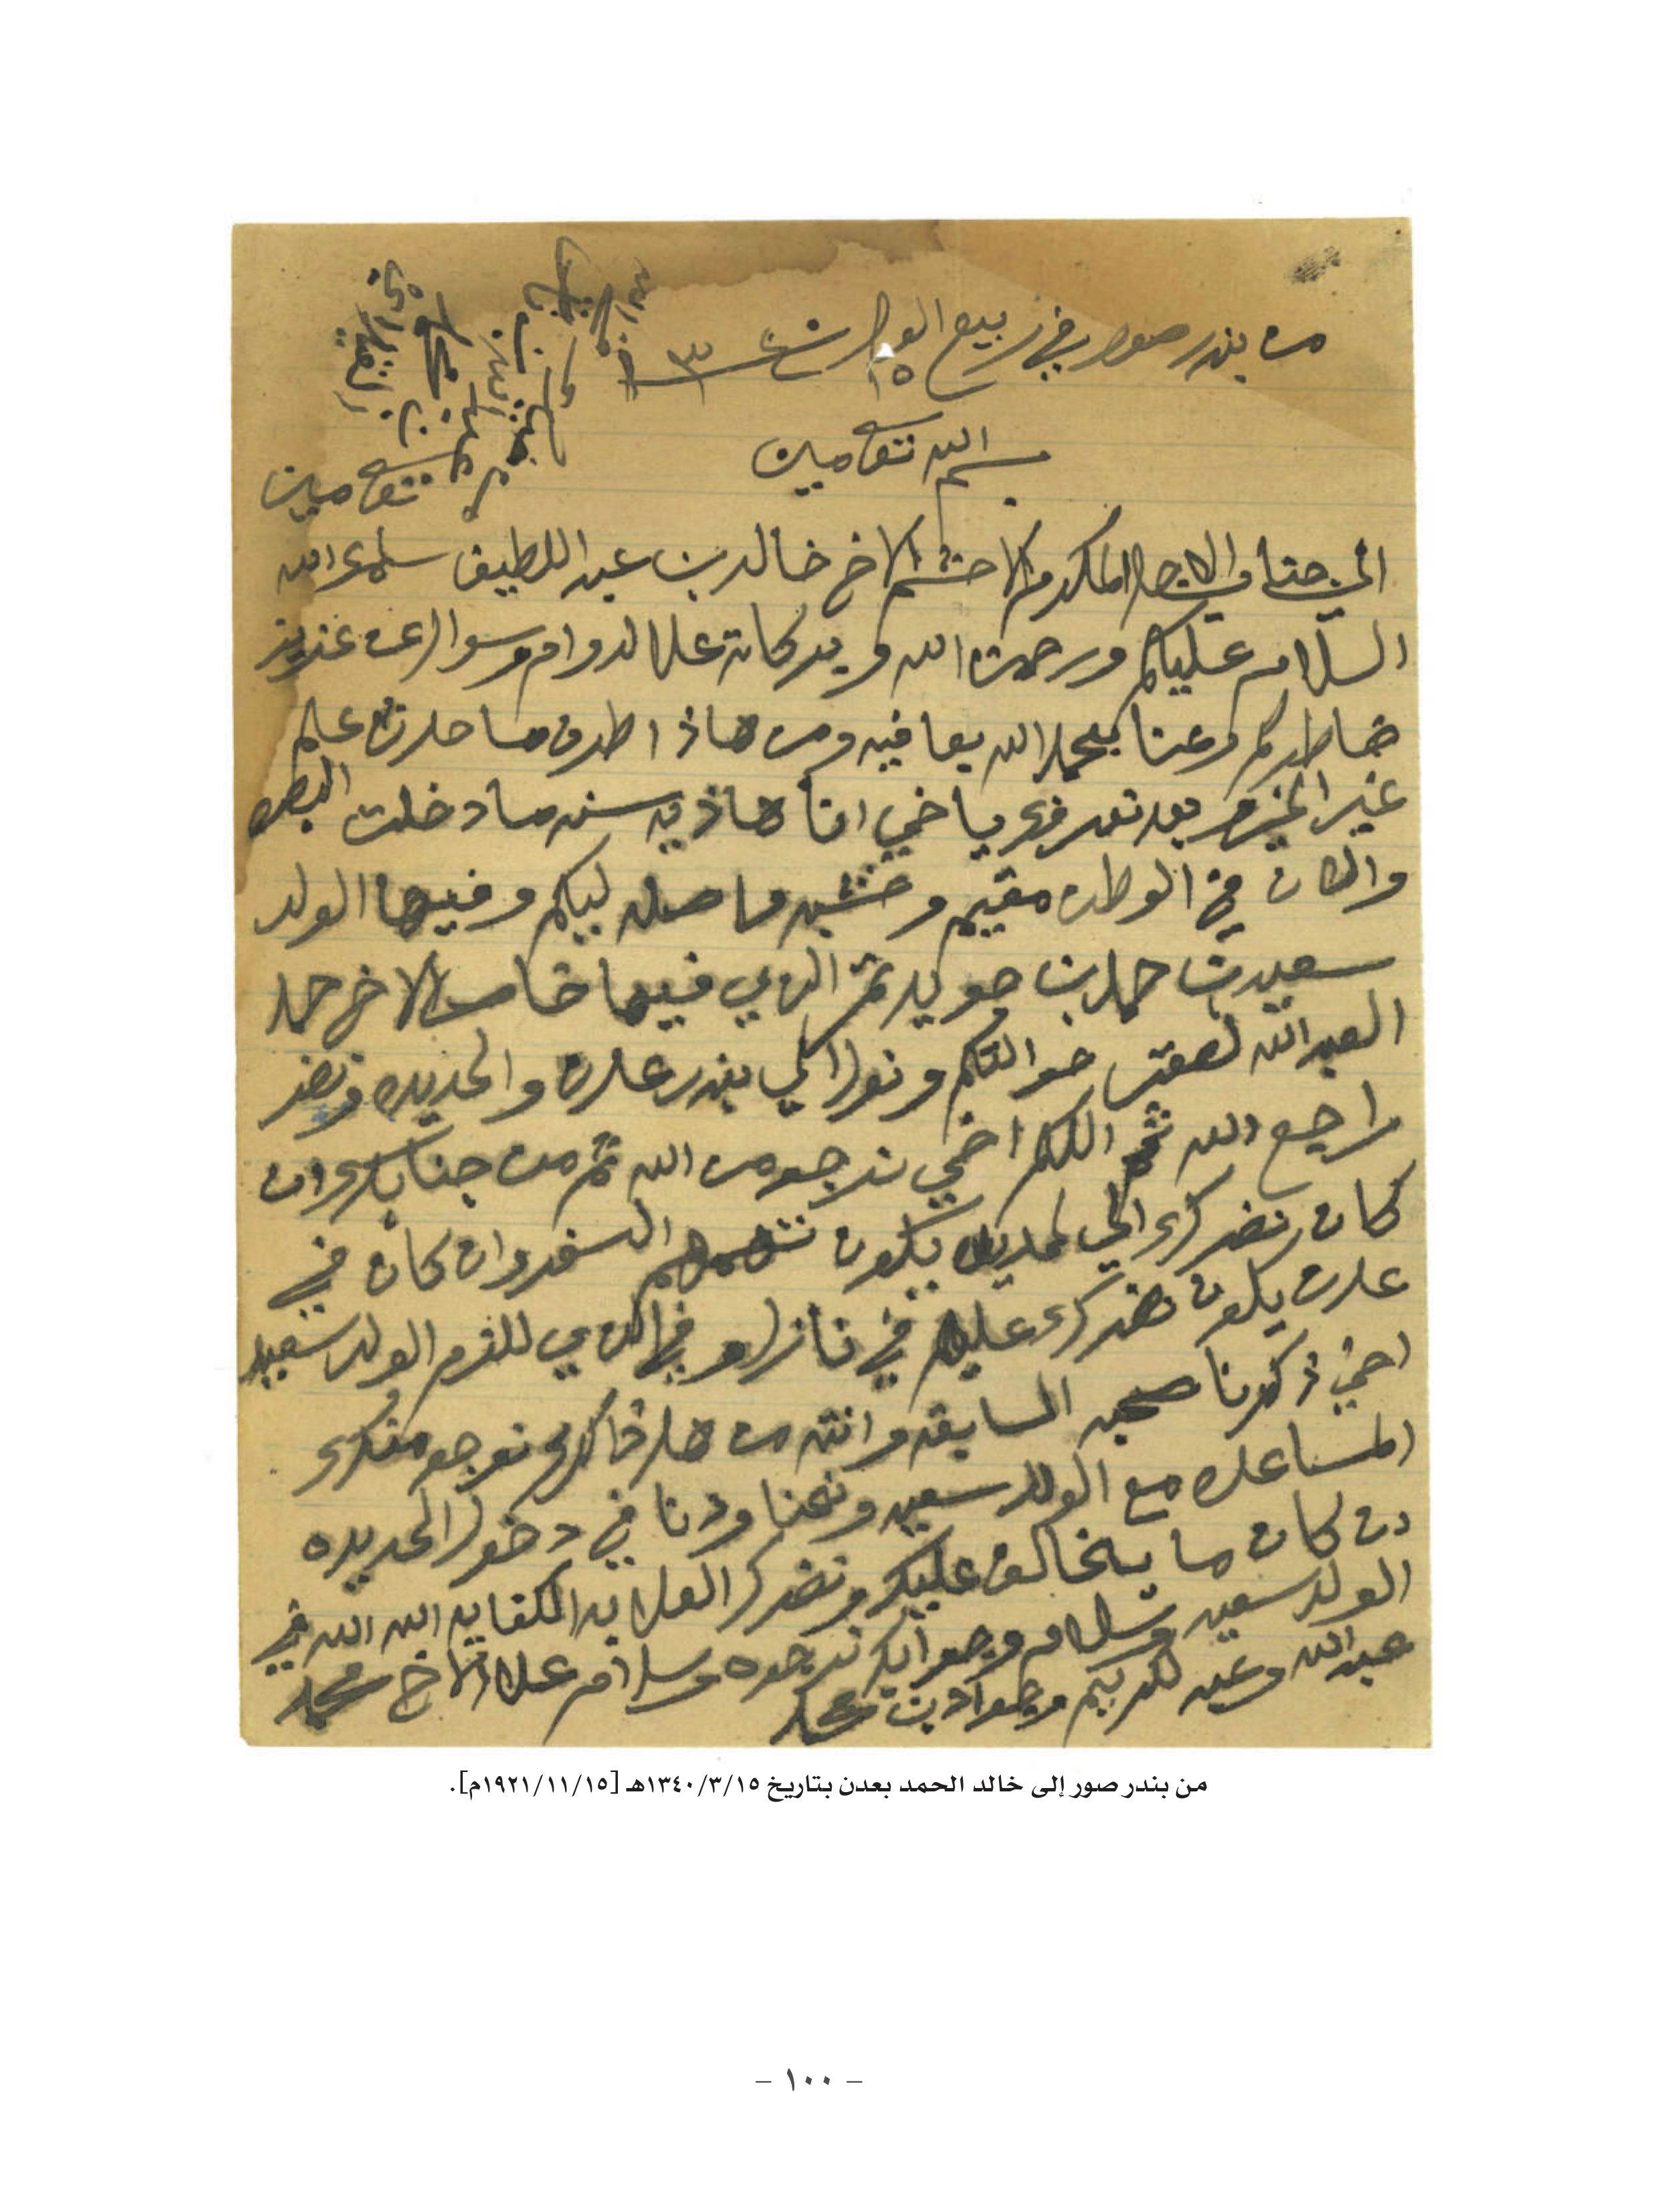 من بندر صور في ربيع الول سنة ١٣٤٠
١٥
بسم الله نتعامين
نتعامين
الى جناب الاجل المكرم الاحشم الاخ خالد بن عبد اللطيف سلمه الله
السلام عليكم ورحمت الله وبركاته علا الدوام وسوال عن عزيز
خاطركم وعنا بحمد الله بعافيه ومن هاذ اطرف ما حدث علم
غير الخير بعد تعريف ياخي انا هاذيه سنه ما دخلت البصره
والكان في الوطن مقيم وخشبه واصله ليكم وفيها الولد
سعيد بن حمد بن جويد تمر الذي فيها خاص الاخ حمد
العبد الله لصقر خوالكم ونول الي بندر عدن والحديده ونضر
راجع الله ثم الكم اخي نرجو من الله ثم من جنابك ان
كان نضرك الي لحديده يكون تتهمهم السفر وان كان في
عدن يكون نضرك عليه في نازل وفي الذي للزم الولد سعيد
اخي ذكرنا صحبه السابقه وانته من هل ذاك نوجو منك
المساعده مع الولد سعيد ونحنا ودنا في دخول الحديده
ان كان ما يخالف عليك ونضرك العلايه الكفايه الله الله في
الولد سعيد وسلام وجوابك نرجوه وسلام علا الاخ محمد
عبد الله وعبد لكريم وجواد بن محمد
من بندر صور إلى خالد الحمد بعدن بتاريخ ١٣٤٠/٣/١٥هـ [١٩٢١/١١/١٥م].
– ١٠٠ –